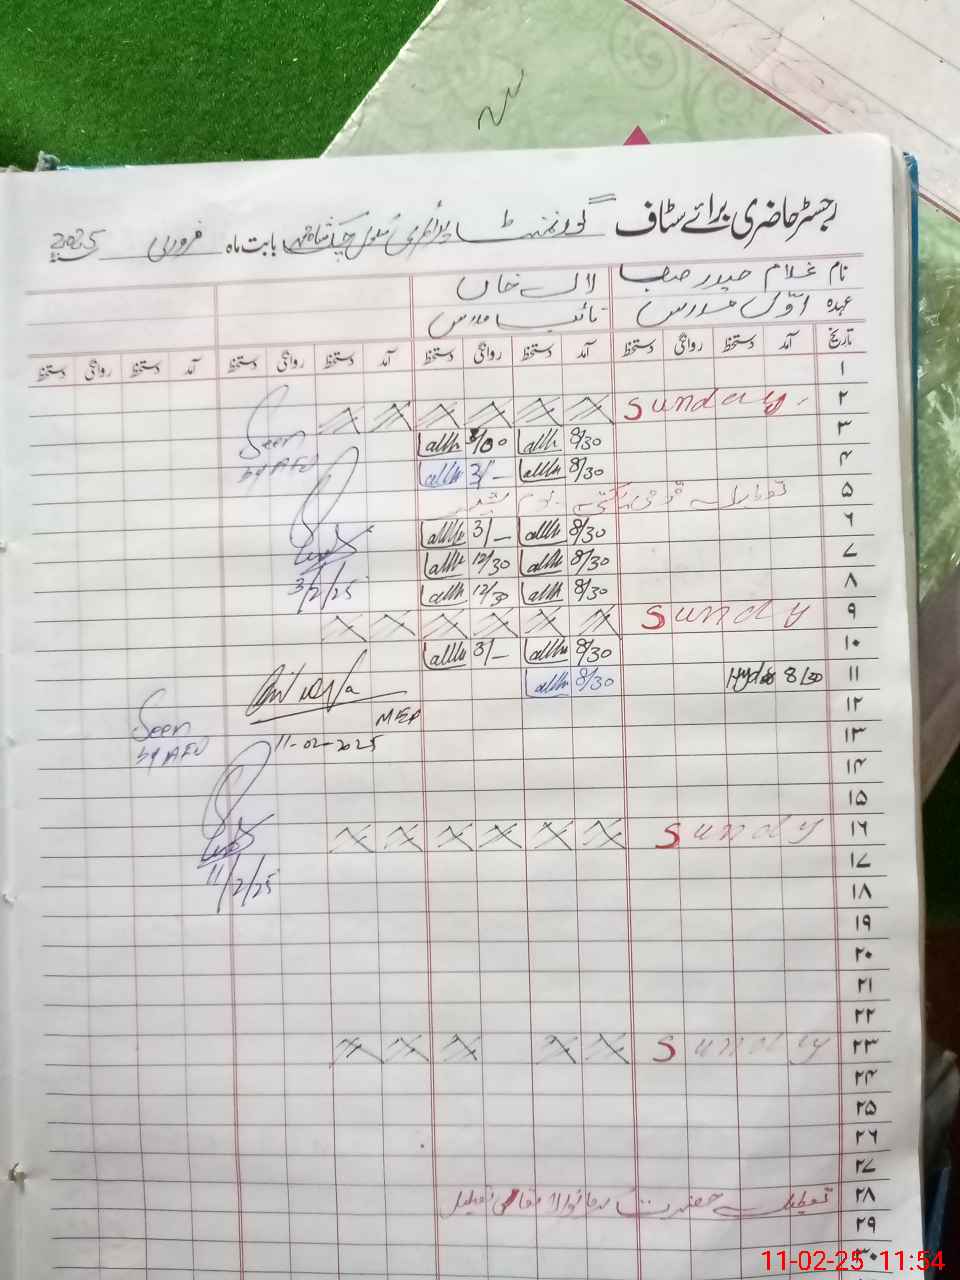 رجسٹر حاضری برائے سٹاف گورنمنٹ پرائمری سکول بابت ماہ فروری 2025
نام غلام حیدر صاحب لال خان
عہدہ اوّل مدرس نائب مدرس
تاریخ آمد دستخط روانگی دستخط آمد دستخط روانگی دستخط آمد دستخط روانگی دستخط آمد دستخط روانگی دستخط
۱
۲ Sunday
۳ 8/30
۴ 8/30 3/–
Seen
by AEO
۵ یوم
۶ 8/30 3/–
۷ 8/30 12/30
۸ 8/30 12/30
3/2/25
۹ Sundy
۱۰ 8/30 3/–
۱۱ 8/30 8/30
۱۲
MEA
۱۳
11-02-2025
Seen
by AEO
۱۴
۱۵
۱۶ Sundy
۱۷
11/2/25
۱۸
۱۹
۲۰
۲۱
۲۲
۲۳ Sundy
۲۴
۲۵
۲۶
۲۷
۲۸ تعطیل حضرت مقامی تعطیل
۲۹
۳۰
11-02-25 11:54